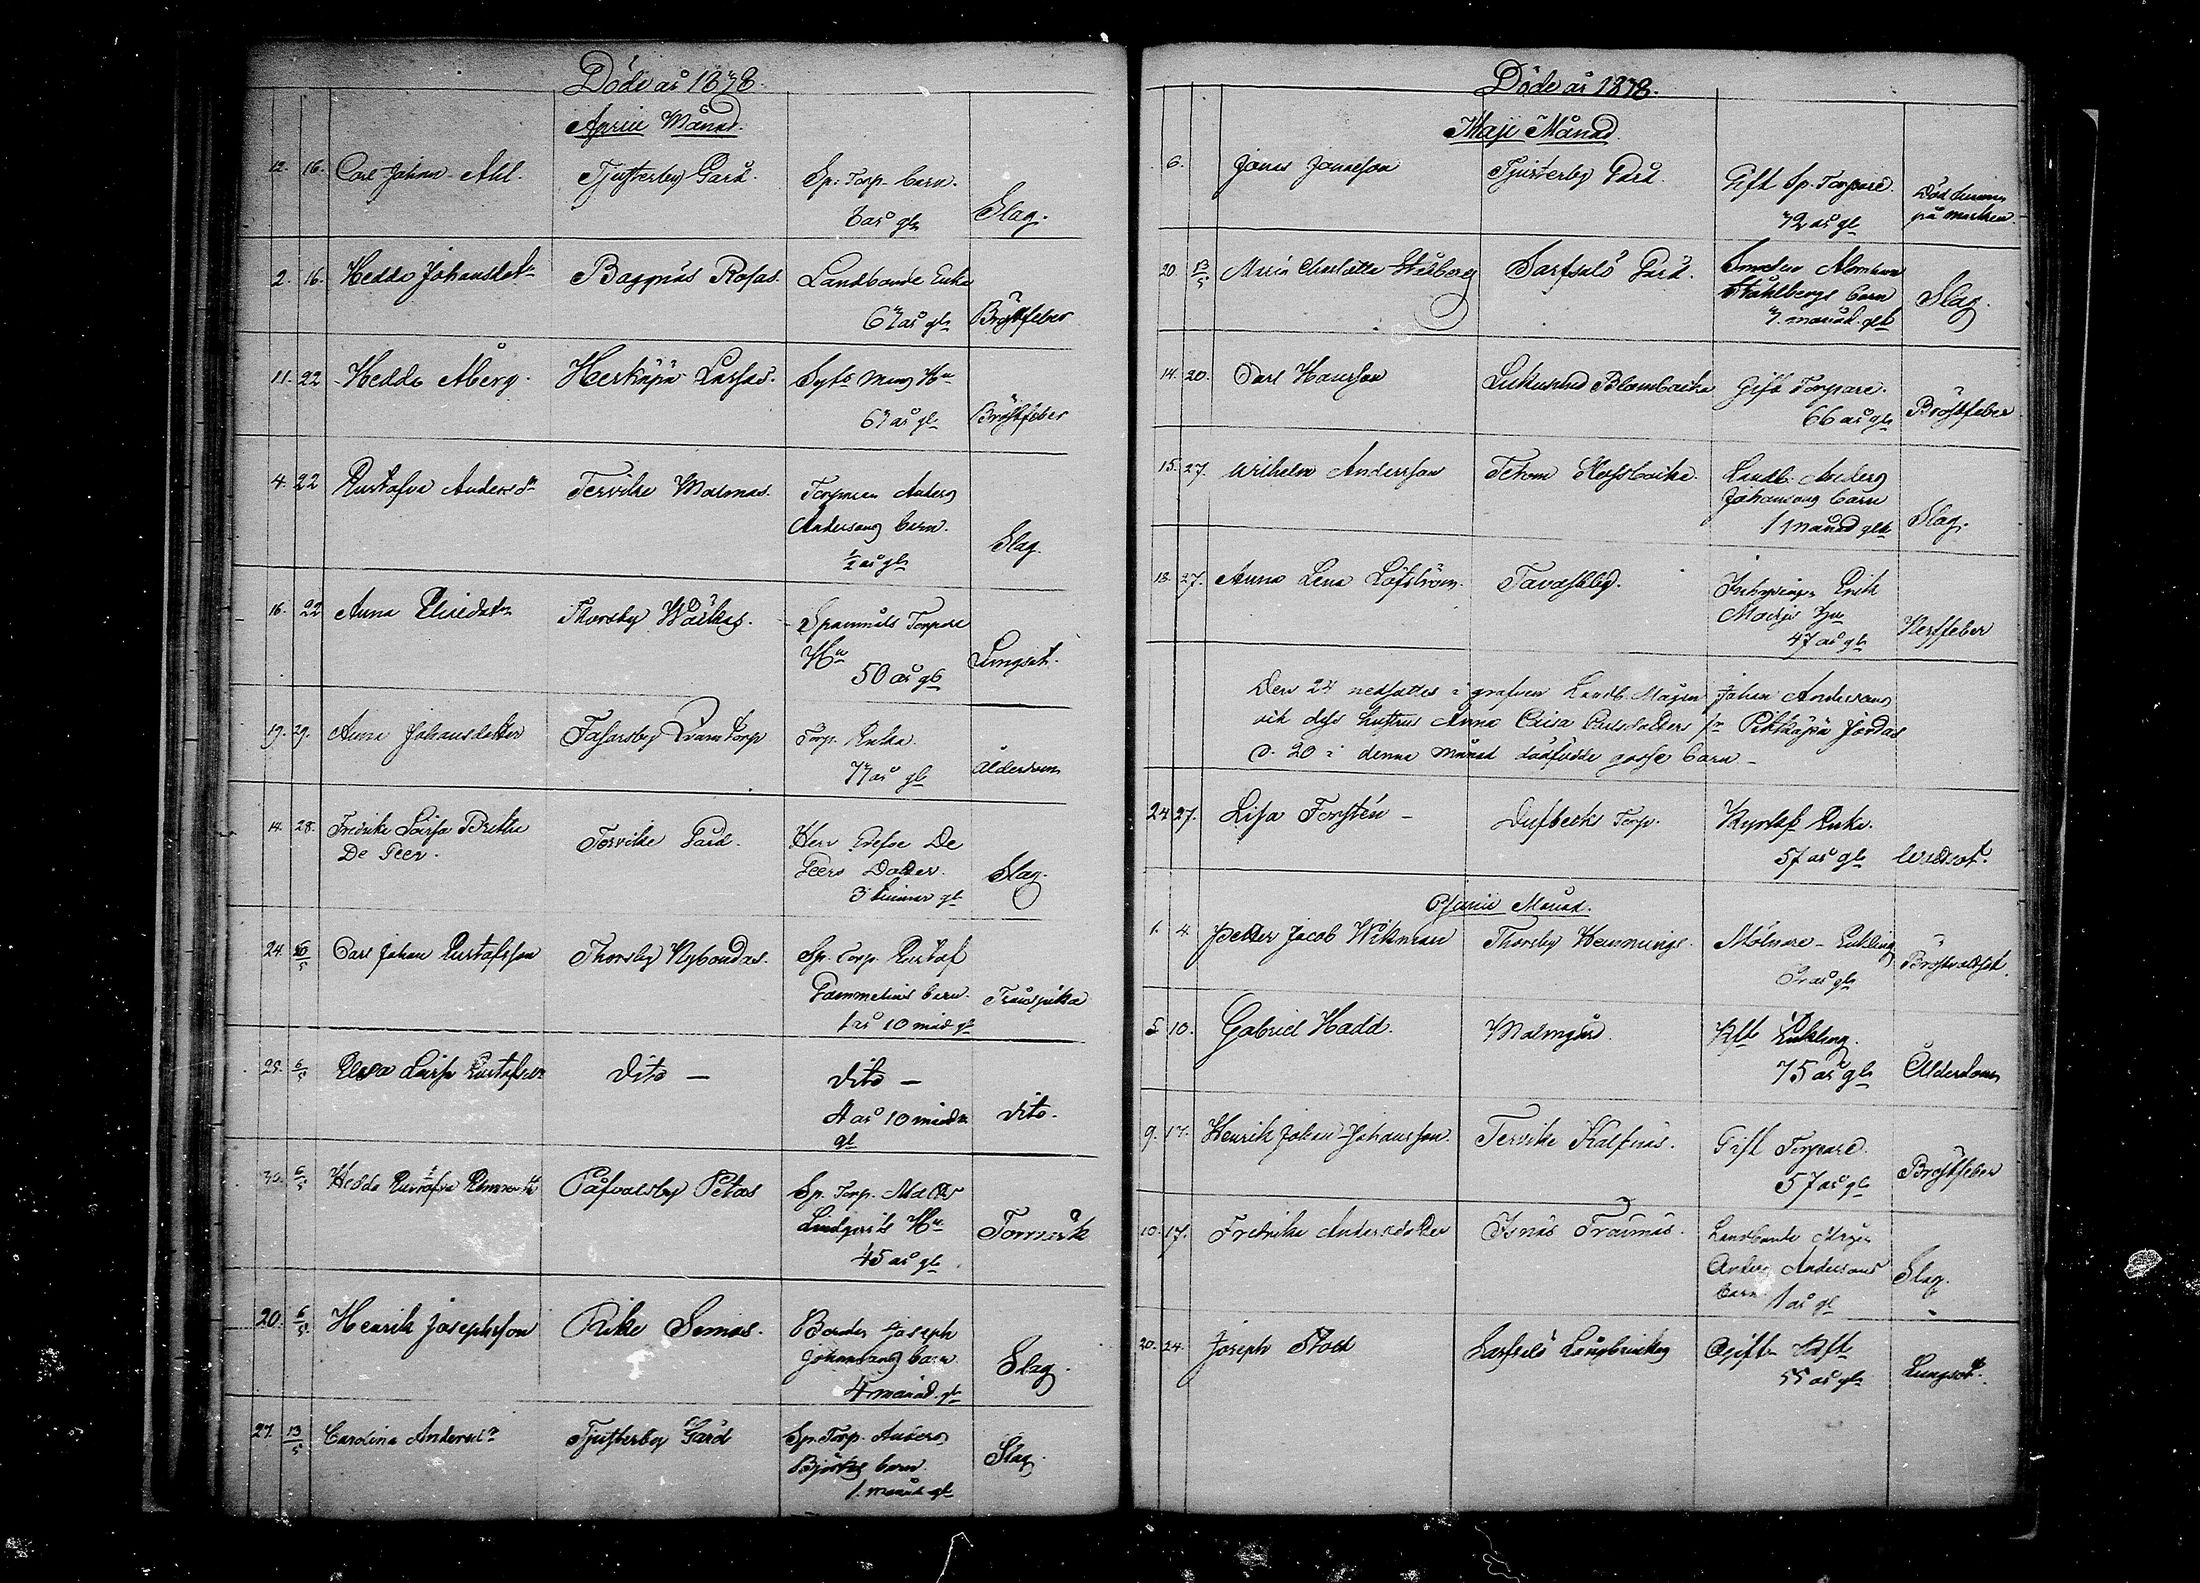 Döde år 1878.
April Månad.
12. 16. Carl Johan Ahl. Tjusterby Gård. Sp. Torp. barn.
6 år gl. Slag.
2. 16. Hedda Johansdotr Baggnäs Rosas. Landbonde Enka
67 år gl. Bröstfeber
11. 22 Hedda Åberg. Herköpä Larsas. Hu
67 år gl. Bröstfeber
4. 22 Gustafva Andersdr Tervike Malmas. Torparen Anders
Andersons barn.
½ år gl. Slag.
16. 22 Anna Thorsby Torpare
Hu
50 år gl. Lungsot.
19. 29. Anna Johansdotter Torp Torp. Enka.
77 år gl. Ålderdom
14. 28. Fredrika Lovisa
De Geer. Tervike Gård. Herr Grefve De
Geers Dotter.
3 timmar gl. Slag.
24. 6/5 Carl Johan Gustafsson Thorsby Nybondas. Sp. Torp. Gustaf
Gammelins barn.
1 år 10 mån gl. Trånsjuka
25. 6/5 Lovisa Gustafsdr Dito — Dito —
4 år 10 månad
gl. Dito.
30. 6/5 Hedda Gustafva Påfvalsby Petas Sp. Torp.
Lindqvists Hu
45 år gl. Torrvärk
20. 6/5 Henrik Josephsson Rike Simas. Bonden Joseph
Johanssons barn
4 månad. gl. Slag.
27. 13/5 Carolina Andersdr Tjusterby Gård Sp. Torp. Anders
Björks barn.
1. månad gl. Slag.
Döde år 1878.
Maji Månad.
6. Jonas Jonasson Tjusterby Gård. Gift Sp. Torpare.
72 år gl. Död funnen
på marken
20. 13/5 Maria Charlotta Sarfsalö Gård. Smeden
Ståhlbergs barn
7. månad. glt Slag.
14. 20. Carl Hansson Blombacka Gift Torpare.
66 år gl. Bröstfeber
15. 27. Wilhelm Andersson Tetom Landb. Anders
Johansons barn
1 månad glt Slag.
18. 27. Anna Lena Löfström. Tavastby. Inhysingen Erik
hu
47 år gl. Nerffeber
Den 24 nedsattes i grafven Landb. Mågen Johan Andersons
och dess hustrus Anna Caisa från Pitkäpä Jordas
d. 20 i denna månad dödfödde gosse barn —
24 27. Lisa Forstén — Torp. Enka.
57 år gl.
Junii Månad.
1. 4. Petter Jacob Wikman Thorsby Hemmings. Mölnare-
år gl.
5 10. Gabriel Hadd. Malmgård.
75 år gl. Ålderdom
9. 17. Henrik Johan Johansson. Tervike Kalfnäs. Gift Torpare.
57 år gl. Bröstfeber
10. 17. Fredrika Andersdotter Isnäs Landbonde Mågen
Anders Andersons
barn 1 år gl Slag.
20. 24. Joseph Sarfsalö Ogift
55 år gl. Lungsot.